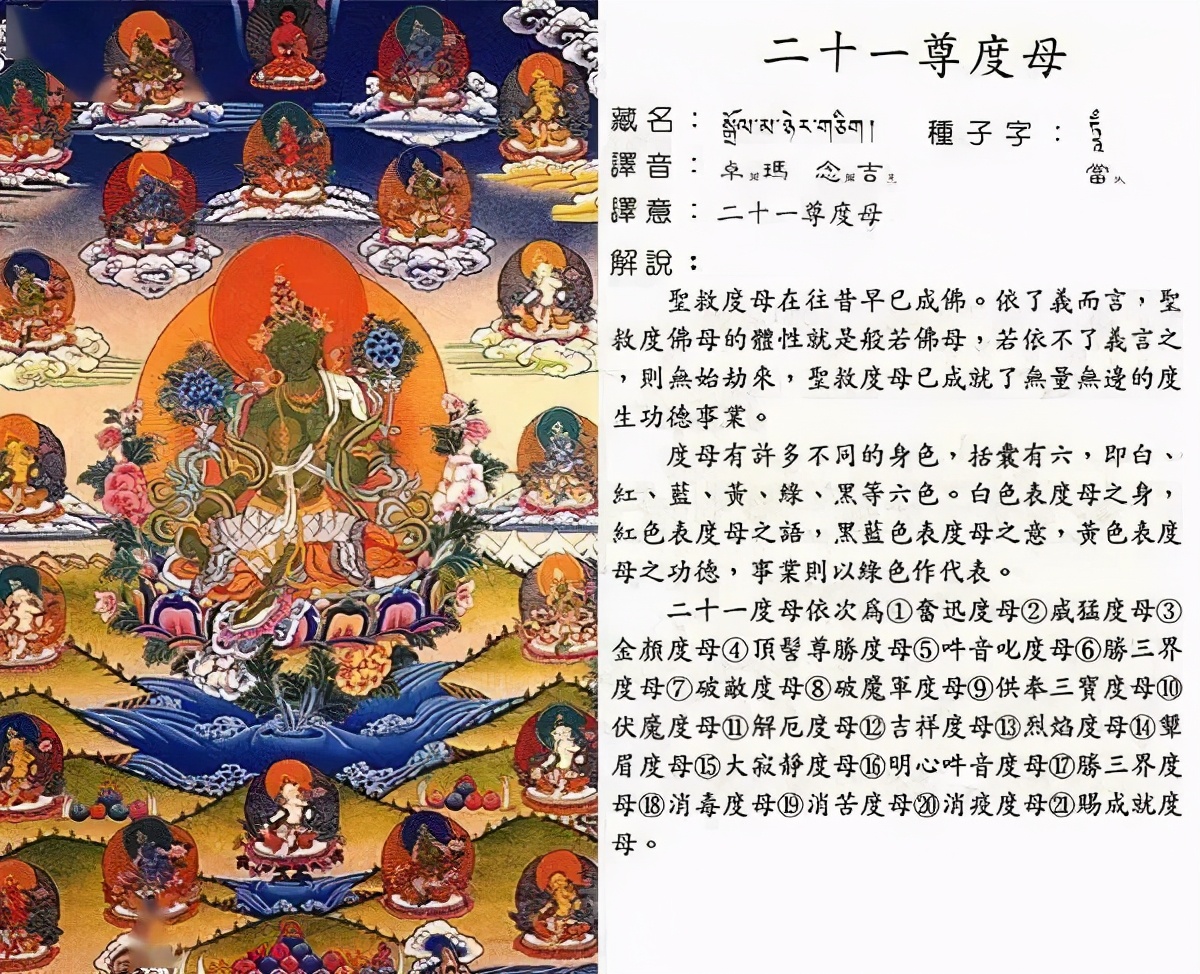 二十一尊度母
藏名：སྒྲོལ་མ་ཉེར་གཅིག། 種子字：
譯音：卓瑪 念吉 當
譯意：二十一尊度母
解說：
聖救度母在往昔早已成佛。依了義而言，聖
救度佛母的體性就是般若佛母，若依不了義言之
，則無始劫來，聖救度母已成就了無量無邊的度
生功德事業。
度母有許多不同的身色，括囊有六，即白、
紅、藍、黃、綠、黑等六色。白色表度母之身，
紅色表度母之語，黑藍色表度母之意，黃色表度
母之功德，事業則以綠色作代表。
二十一度母依次爲①奮迅度母②威猛度母③
金顏度母④頂髻尊勝度母⑤吽音叱度母⑥勝三界
度母⑦破敵度母⑧破魔軍度母⑨供奉三寶度母⑩
伏魔度母⑪解厄度母⑫吉祥度母⑬烈焰度母⑭顰
眉度母⑮大寂靜度母⑯明心吽音度母⑰勝三界度
母⑱消毒度母⑲消苦度母⑳消疫度母㉑賜成就度
母。